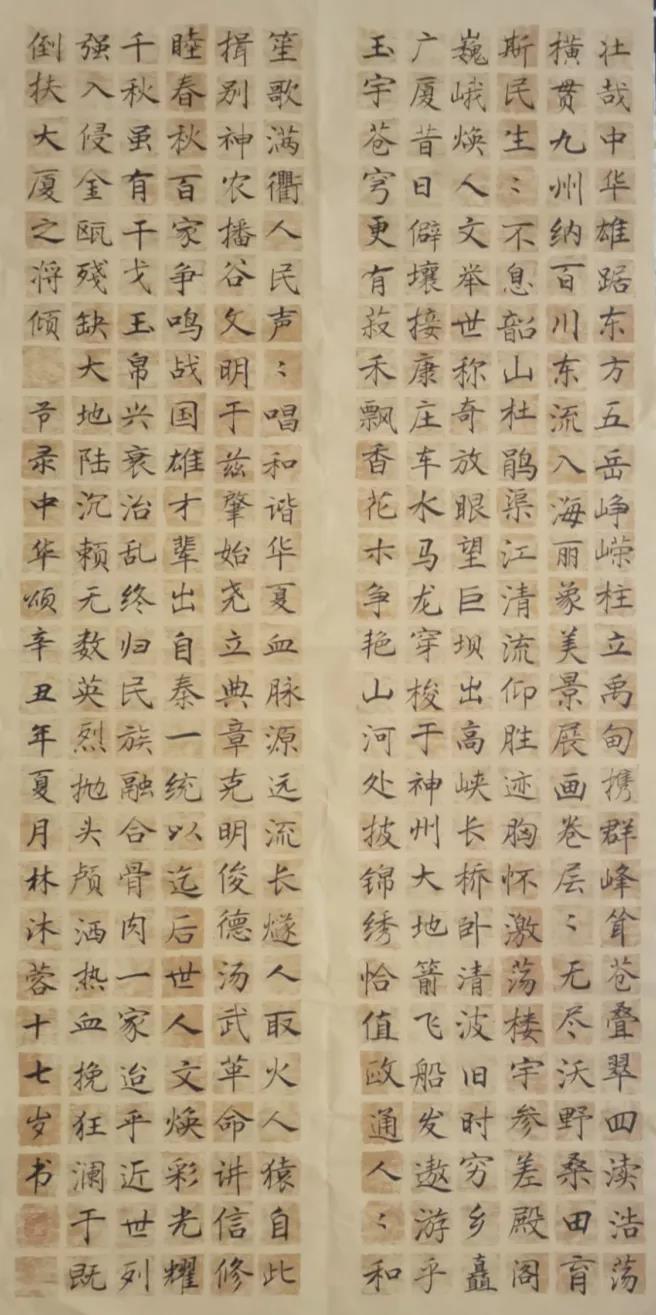 壮哉中华雄踞东方五岳峥嵘柱立禹甸携群峰耸苍叠翠四渎浩荡
横贯九州纳百川东流入海丽象美景展画卷层〻无尽沃野桑田育
斯民生〻不息韶山杜鹃渠江清流仰胜迹胸怀激荡楼宇参差殿阁
巍峨焕人文举世称奇放眼望巨坝出高峡长桥卧清波旧时穷乡矗
广厦昔日僻壤接康庄车水马龙穿梭于神州大地箭飞船发遨游乎
玉宇苍穹更有菽禾飘香花木争艳山河处披锦绣恰值政通人〻和
笙歌满衢人民声〻唱和谐华夏血脉源远流长燧人取火人猿自此
揖别神农播谷文明于兹肇始尧立典章克明俊德汤武革命讲信修
睦春秋百家争鸣战国雄才辈出自秦一统以迄后世人文焕彩光耀
千秋虽有干戈玉帛兴衰治乱终归民族融合骨肉一家迨乎近世列
强入侵金瓯残缺大地陆沉赖无数英烈抛头颅洒热血挽狂澜于既
倒扶大厦之将倾
节录中华颂辛丑年夏月林沐蓉十七岁书